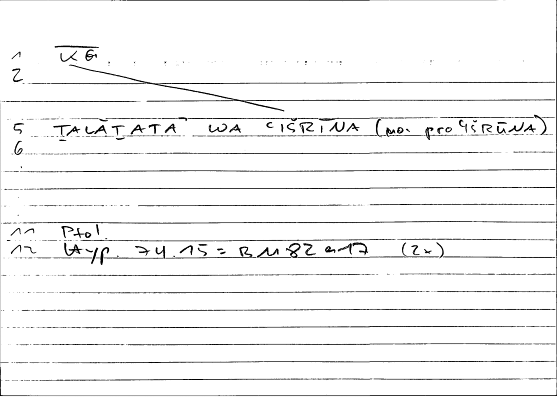 1 Κ̅Θ̅
2
5 ṮALĀṮATA WA ʿIŠRĪNA (mo. pro ʿIŠRŪNA)
6
11 Ptol.
12 Hyp. 74.15 = BM 82 a 17 (2x)